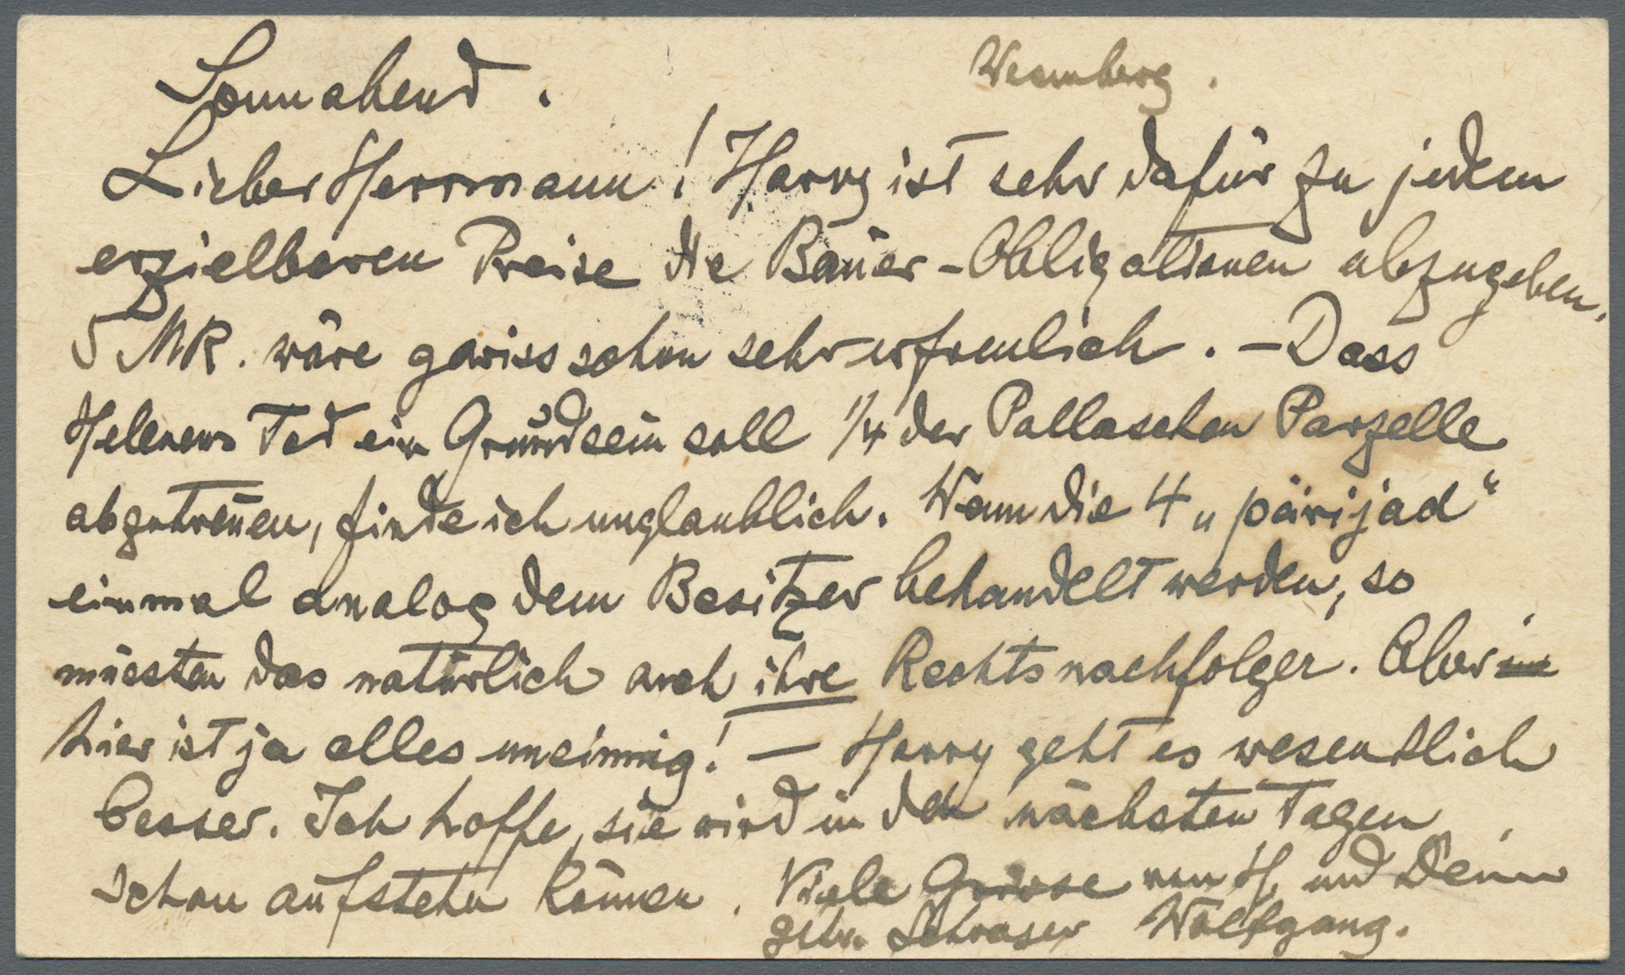 Sonnabend.
Lieber Herrmann! Harry ist sehr dafür zu jedem
erzielbaren Preise die Bauer-Obligationen abzugeben,
5 MR. wäre gewiss schon sehr erfreulich. – Dass
Helenens Tod ein Grund sein soll 1/4 der Parzelle
abzutrennen, finde ich unglaublich. Wenn die 4 „pärijad“
einmal analog dem Besitzer behandelt werden, so
müssten das natürlich auch ihre Rechtsnachfolger. Aber
hier ist ja alles unsinnig! – Harry geht es wesentlich
besser. Ich hoffe, sie wird in den nächsten Tagen
schon aufstehn können. Viele Grüsse von H. und Deinem
getr. Wolfgang.